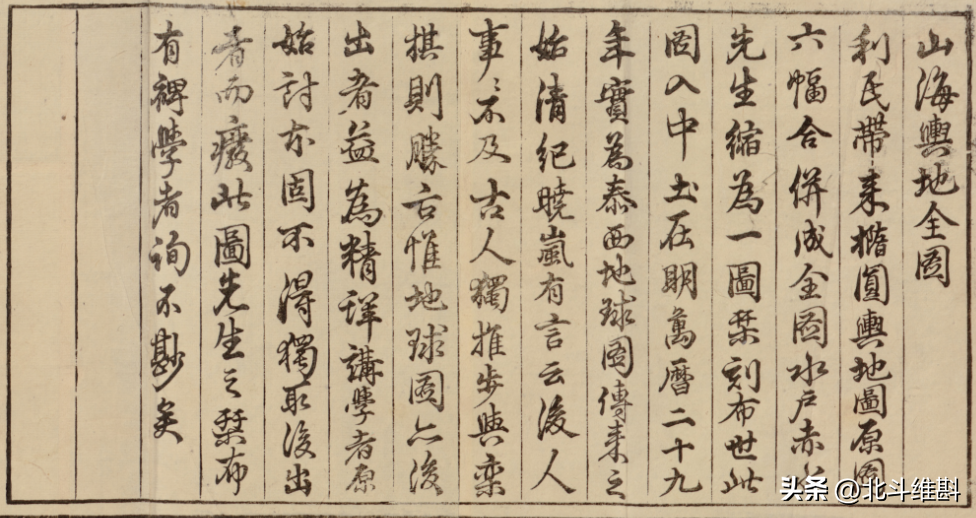 山海輿地全圖
利民帶来橢圓輿地圖原圖
六幅合併成全圖水戶赤水
先生縮為一圖栞刻布世此
圖入中土在明萬曆二十九
年實為泰西地球圖傳来之
始清紀曉嵐有言云後人
事〻不及古人獨推步與奕
棋則勝古惟地球圖亦後
出者益為精詳講學者原
始討本固不得獨取後出
者而廢此圖先生之栞布
有裨學者詢不尠矣
头条 @北斗维斟